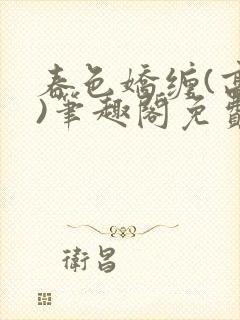 春色嬌纏(
)筆趣閣免費
衛昌